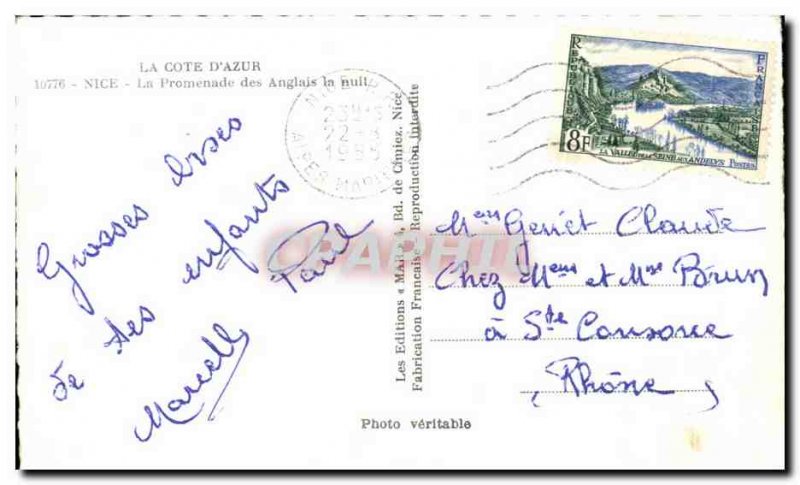 LA COTE D'AZUR
10776 - NICE - La Promenade des Anglais la nuit
Grosses bises
de tes enfants
Marcelle Paul
Les Editions « MAR », Bd. de Cimiez, Nice
Fabrication Française Reproduction interdite
Photo véritable
REPUBLIQUE FRANÇAISE
8F
LA VALLÉE DE LA SEINE AUX ANDELYS POSTES
1955
ALPES MARIT
Claude
Chez Mr et Mme Brun
à Ste Consorce
Rhône